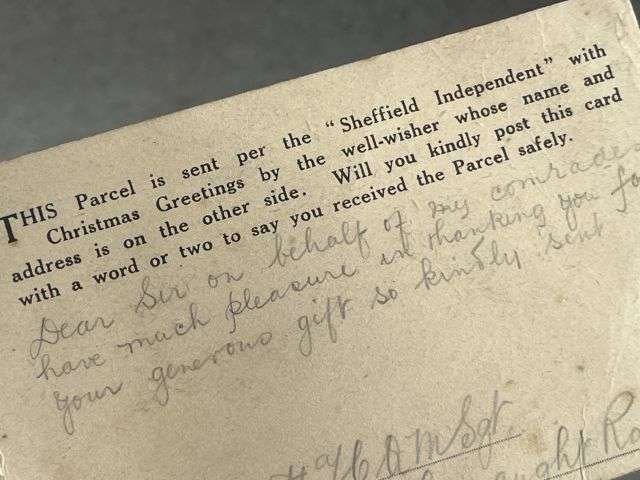 THIS Parcel is sent per the "Sheffield Independent" with
Christmas Greetings by the well-wisher whose name and
address is on the other side. Will you kindly post this card
with a word or two to say you received the Parcel safely.
Dear Sir on behalf of my comrades
have much pleasure in thanking you for
your generous gift so kindly sent
Q M Sgt.